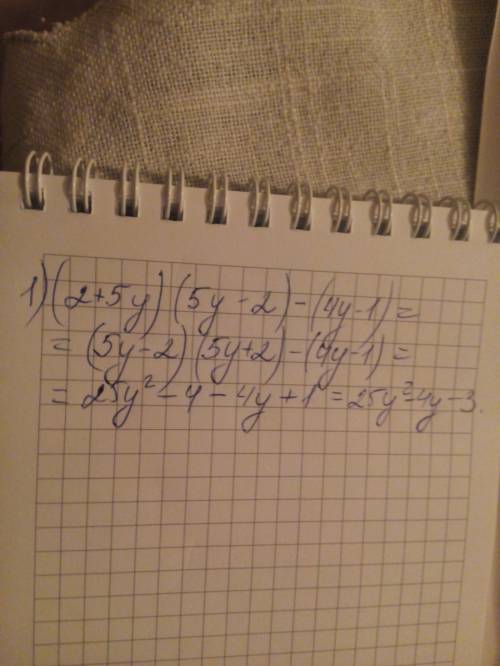 1) (2+5y) (5y-2) - (4y-1) =
= (5y-2) (5y+2) - (4y-1) =
= 25y² - 4 - 4y + 1 = 25y² - 4y - 3.